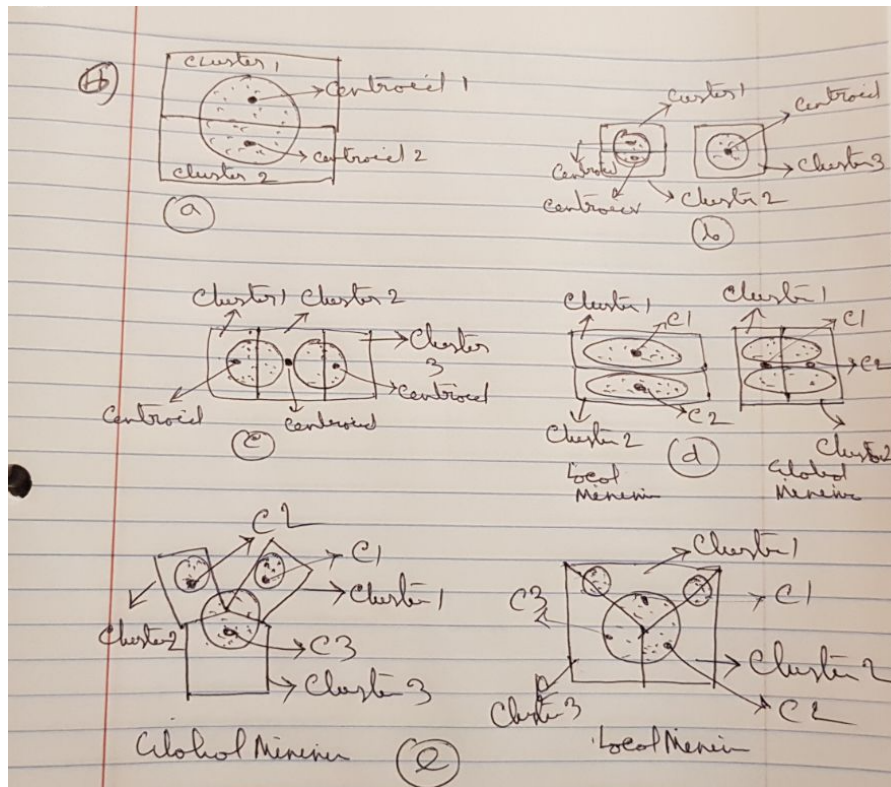 4
cluster 1
centroid 1
centroid 2
cluster 2
a
cluster 1
centroid
centroid
centroid
cluster 2
cluster 3
b
cluster 1
cluster 2
cluster
3
centroid
centroid
centroid
c
cluster 1
C1
C2
cluster 2
Local
cluster 1
C1
C2
cluster 2
Global
d
C2
C1
cluster 1
cluster 2
C3
cluster 3
Global
cluster 1
C3
C1
cluster 2
cluster 3
C2
Local
e